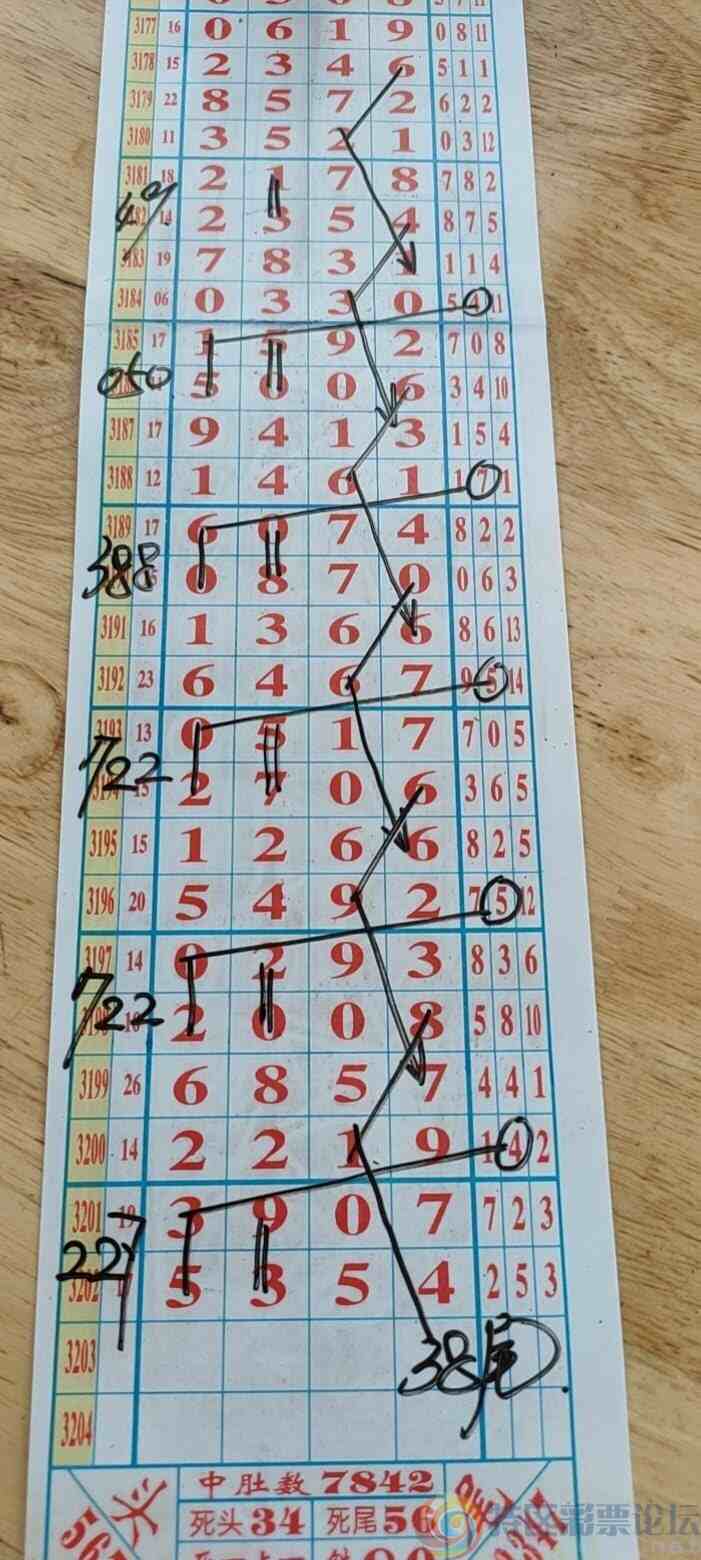 3177 16 0 6 1 9 0 8 11
3178 15 2 3 4 6 5 1 1
3179 22 8 5 7 2 6 2 2
3180 11 3 5 2 1 0 3 12
3181 18 2 1 7 8 7 8 2
14 2 3 5 4 8 7 5
3183 19 7 8 3 1 1 4
3184 06 0 3 3 0 5 4 11
3185 17 1 5 9 2 7 0 8
050 5 0 0 6 3 4 10
3187 17 9 4 1 3 1 5 4
3188 12 1 4 6 1 1 7 1
3189 17 6 0 7 4 8 2 2
388 0 8 7 0 0 6 3
3191 16 1 3 6 6 8 6 13
3192 23 6 4 6 7 9 5 14
3193 13 0 5 1 7 7 0 5
722 3194 15 2 7 0 6 3 6 5
3195 15 1 2 6 6 8 2 5
3196 20 5 4 9 2 7 5 12
3197 14 0 2 9 3 8 3 6
722 2 0 0 8 5 8 10
3199 26 6 8 5 7 4 4 1
3200 14 2 2 1 9 1 4 2
3201 19 3 9 0 7 7 2 3
227 3202 5 3 5 4 2 5 3
3203 38尾
3204
头 中肚数 7842
561 死头34 死尾56
特区彩票论坛